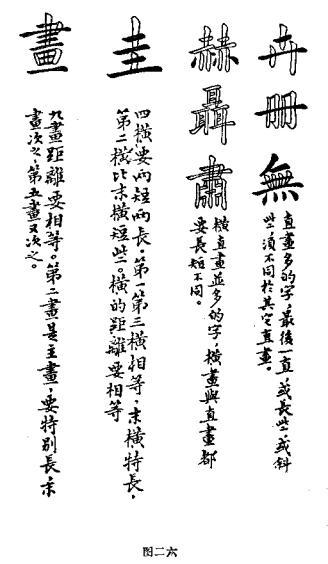 卉冊無
直畫多的字，最後一直，或長些，或斜
些，須不同於其它直畫。
赫聶肅
橫直畫並多的字，橫畫與直畫都
要長短不同。
圭
四橫，要兩短兩長。第一第三橫相等，末橫特長，
第二橫比末橫短些。橫的距離要相等
畫
九畫距離要相等。第二畫是主畫，要特別長，末
畫次之，第五畫又次之。
图二六